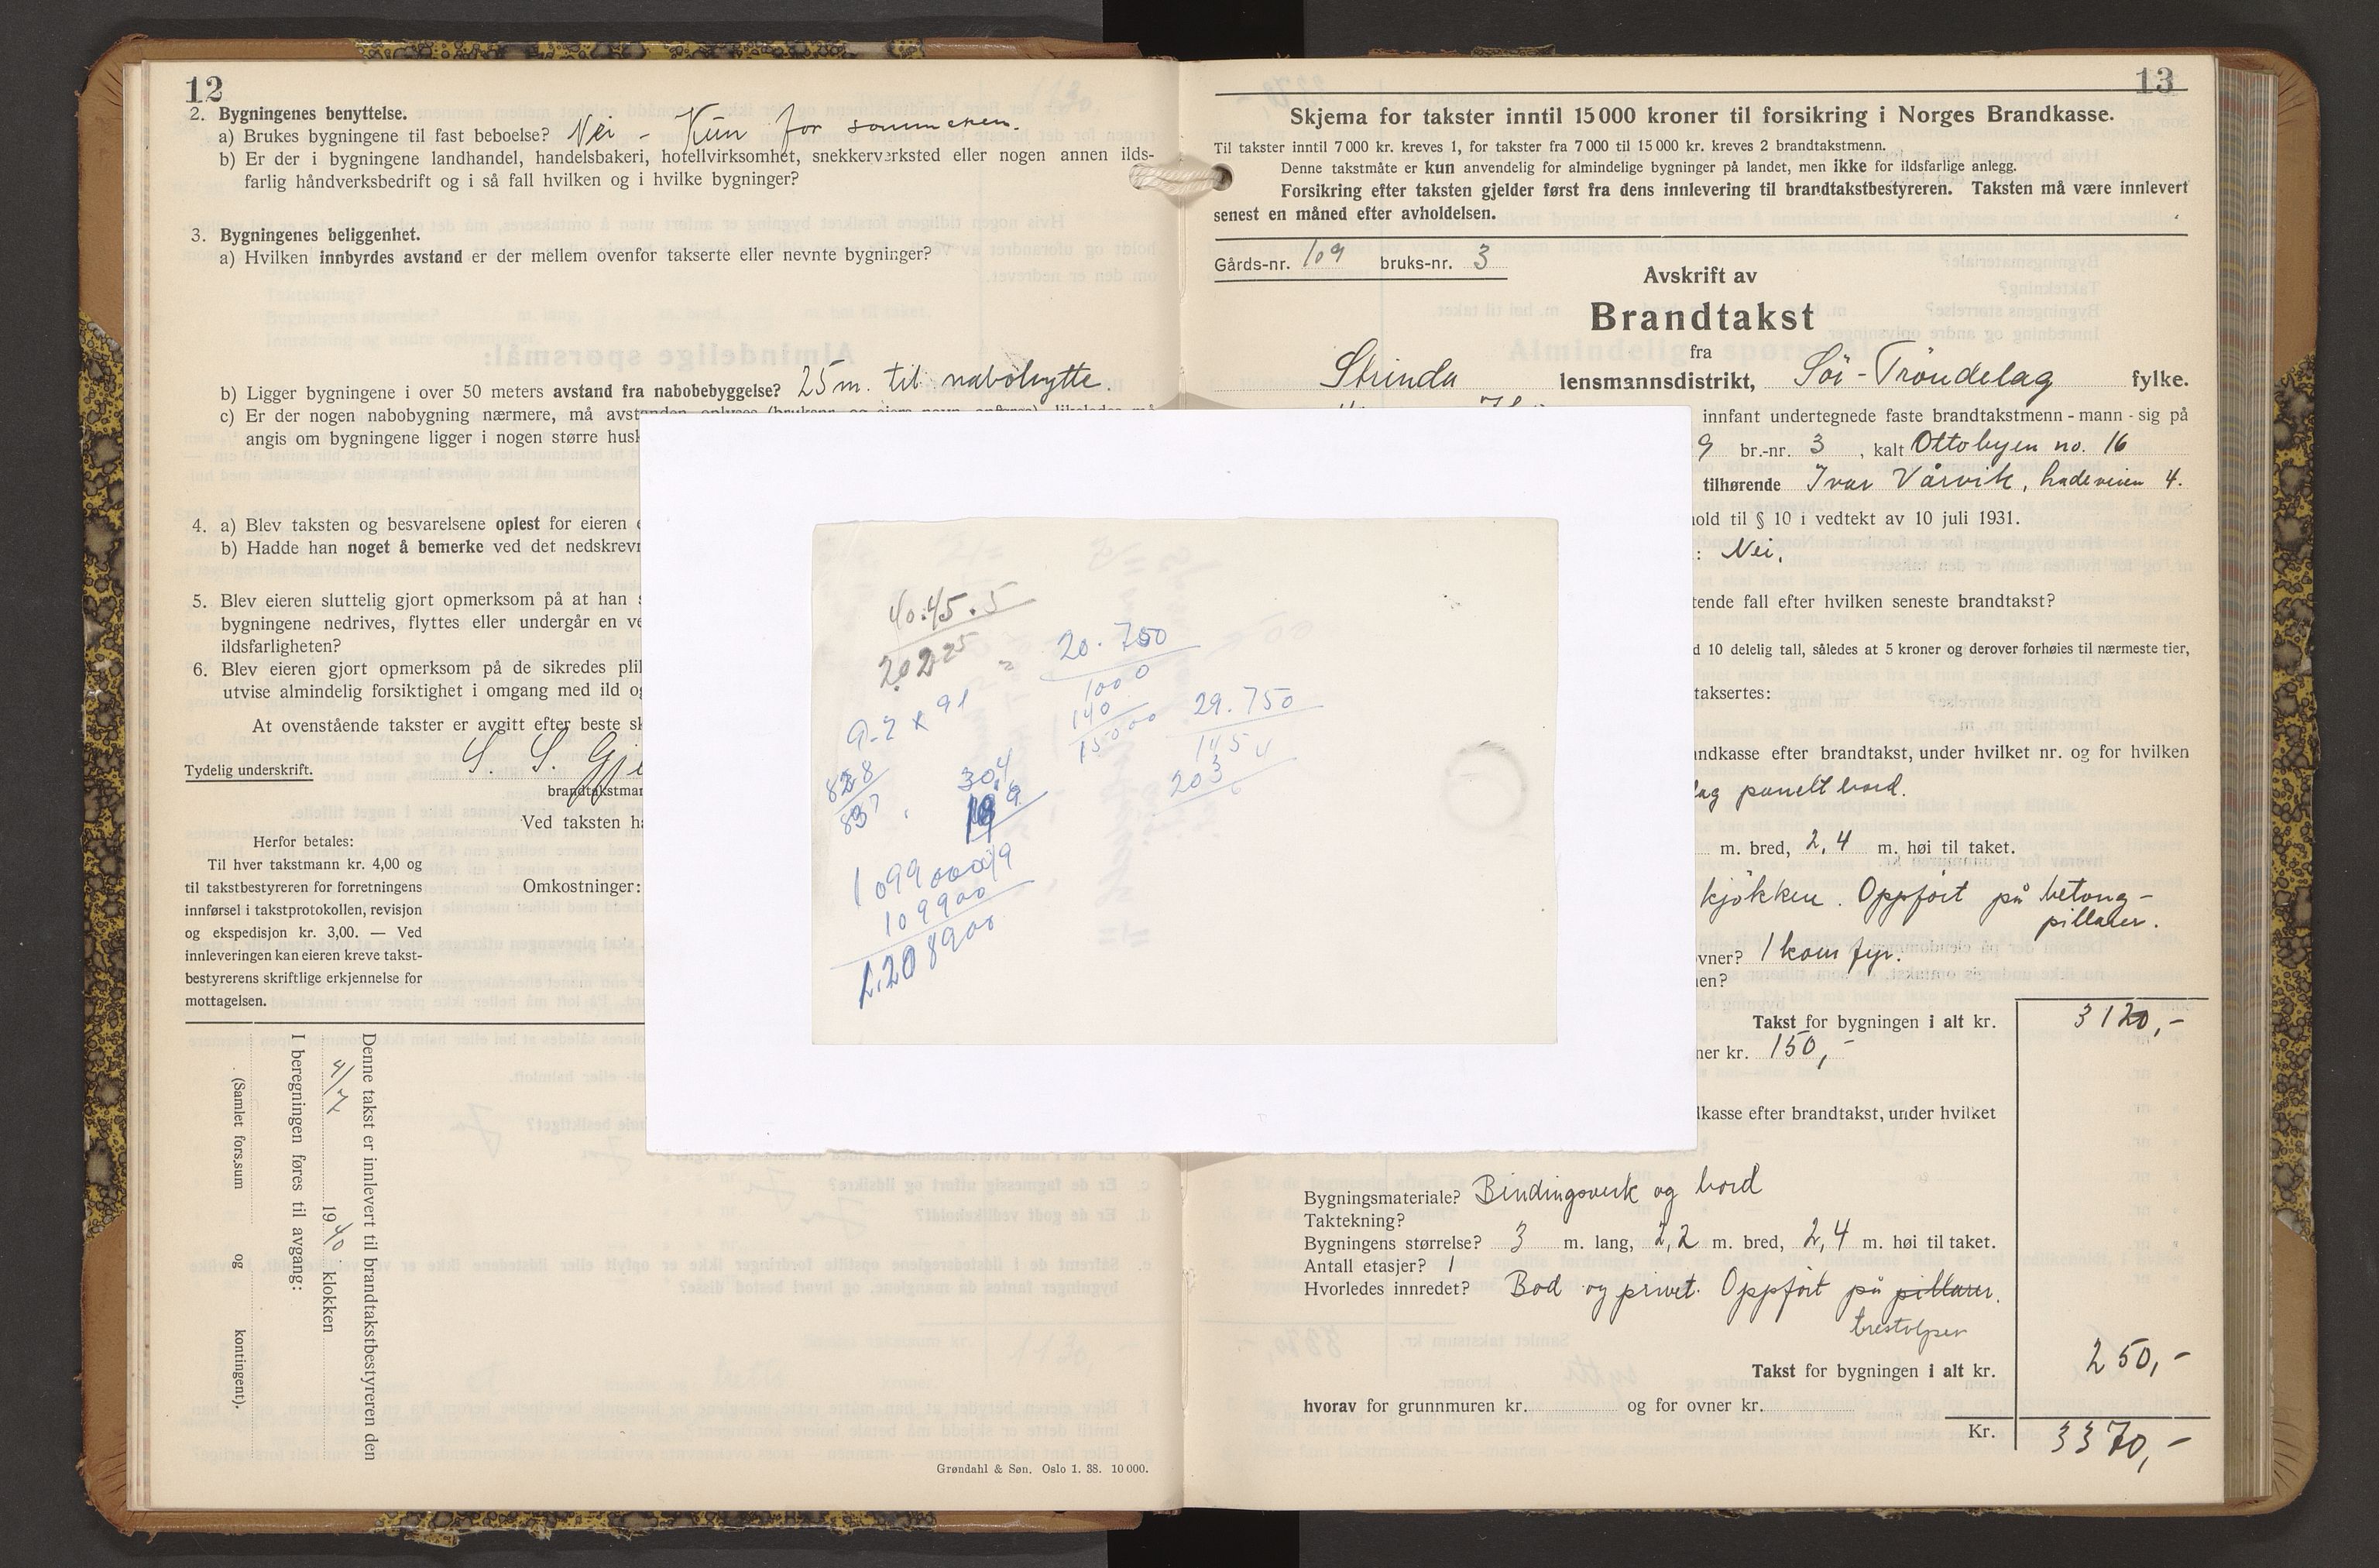 12
2. Bygningenes benyttelse.
a) Brukes bygningene til fast beboelse? Nei - Kun for sommeren.
b) Er der i bygningene landhandel, handelsbakeri, hotellvirksomhet, snekkerverksted eller nogen annen ilds-
farlig håndverksbedrift og i så fall hvilken og i hvilke bygninger?
3. Bygningenes beliggenhet.
a) Hvilken innbyrdes avstand er der mellem ovenfor takserte eller nevnte bygninger?
b) Ligger bygningene i over 50 meters avstand fra nabobebyggelse? 25 m. til nabohytte.
c) Er der nogen nabobygning nærmere, må
angis om bygningene ligger i nogen større
4. a) Blev taksten og besvarelsene oplest for eieren
b) Hadde han noget å bemerke ved det
5. Blev eieren sluttelig gjort opmerksom på at han
bygningene nedrives, flyttes eller undergår en
ildsfarligheten?
6. Blev eieren gjort opmerksom på de sikredes
utvise almindelig forsiktighet i omgang med ild
At ovenstående takster er avgitt efter beste
S. S.
Tydelig underskrift.
Ved taksten
Herfor betales:
Til hver takstmann kr. 4,00 og
til takstbestyreren for forretningens
innførsel i takstprotokollen, revisjon
og ekspedisjon kr. 3,00. — Ved
innleveringen kan eieren kreve takst-
bestyrerens skriftlige erkjennelse for
mottagelsen.
Omkostninger:
Denne takst er innlevert til brandtakstbestyreren den
4/7 1940 klokken
I beregningen føres til avgang:
(Samlet fors.sum og kontingent).
Grøndahl & Søn. Oslo 1. 38. 10 000.
40.45.5
20.750
1000
140
15000
29.750
145
203
304
109900
1208900
13
Skjema for takster inntil 15 000 kroner til forsikring i Norges Brandkasse.
Til takster inntil 7 000 kr. kreves 1, for takster fra 7 000 til 15 000 kr. kreves 2 brandtakstmenn.
Denne takstmåte er kun anvendelig for almindelige bygninger på landet, men ikke for ildsfarlige anlegg.
Forsikring efter taksten gjelder først fra dens innlevering til brandtakstbestyreren. Taksten må være innlevert
senest en måned efter avholdelsen.
Gårds-nr. 109 bruks-nr. 3
Avskrift av
Brandtakst
fra
Strinda lensmannsdistrikt, Sör-Tröndelag fylke.
innfant undertegnede faste brandtakstmenn - mann - sig på
9 br.-nr. 3, kalt Ottobyen no. 16
tilhørende Ivar Vårvik, Ladeveien 4.
til § 10 i vedtekt av 10 juli 1931.
: Nei.
fall efter hvilken seneste brandtakst?
10 delelig tall, således at 5 kroner og derover forhøies til nærmeste tier,
efter brandtakst, under hvilket nr. og for hvilken
panelt bord.
m. bred, 2,4 m. høi til taket.
kjökken. Oppfört på betong-
pillarer.
1 kom fyr.
Takst for bygningen i alt kr. 3120,-
kr. 150,-
efter brandtakst, under hvilket
Bygningsmateriale? Bindingsverk og bord
Taktekning?
Bygningens størrelse? 3 m. lang, 2,2 m. bred, 2,4 m. høi til taket.
Antall etasjer? 1
Hvorledes innredet? Bod og privet. Oppfört på pillarer.
trestolper
Takst for bygningen i alt kr. 250,-
hvorav for grunnmuren kr. og for ovner kr.
Kr. 3370,-